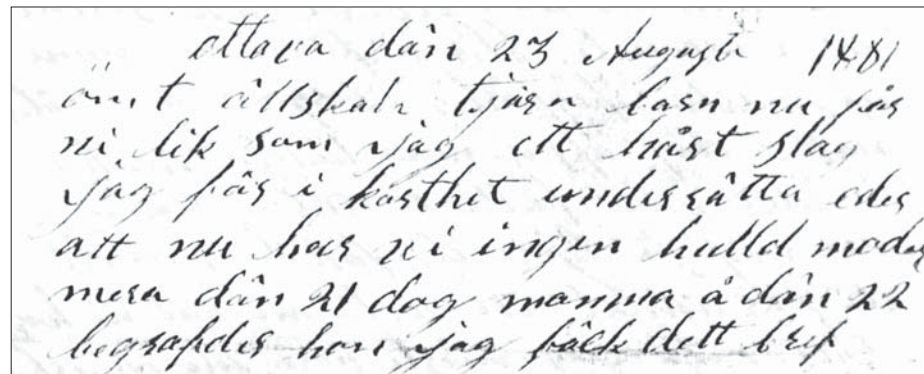 ottava dän 23 Augusti 1881
ömt älskade kjära barn nu får
ni lik som jag ett hårt slag
jag får i korthet underrätta eder
att nu har ni ingen hulld moder
mera dän 21 dog mamma å dän 22
begrafdes hon jag fäck dett bref